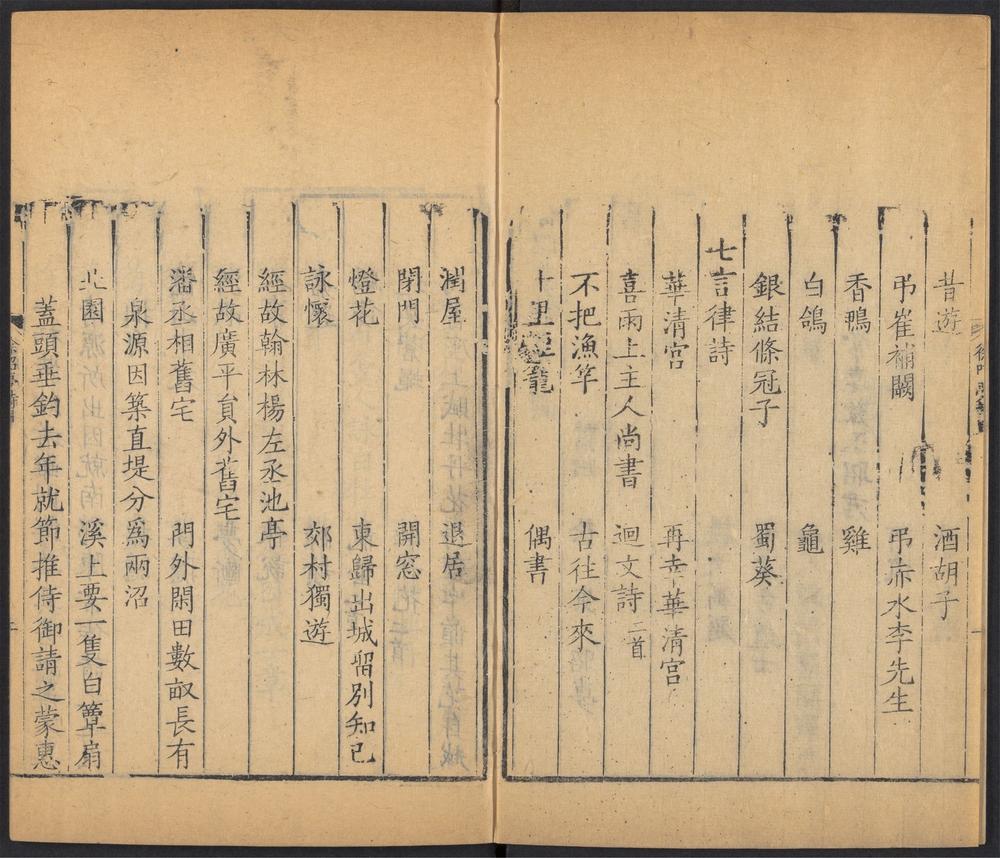 昔遊　酒胡子
弔崔補闕　弔赤水李先生
香鴨　雞
白鴿　龜
銀結條冠子　蜀葵
七言律詩
華清宮　再幸華清宮
喜雨上主人尚書　迴文詩二首
不把漁竿　古往今來
十里煙籠　偶書
潤屋　退居
閉門　開窓
燈花　東歸出城留別知已
詠懷　郊村獨遊
經故翰林楊左丞池亭
經故廣平員外舊宅
潘丞相舊宅　門外閑田數畝長有
泉源因築直堤分爲兩沼
北園　溪上要一隻白簟扇
蓋頭垂釣去年就節推侍御請之蒙惠